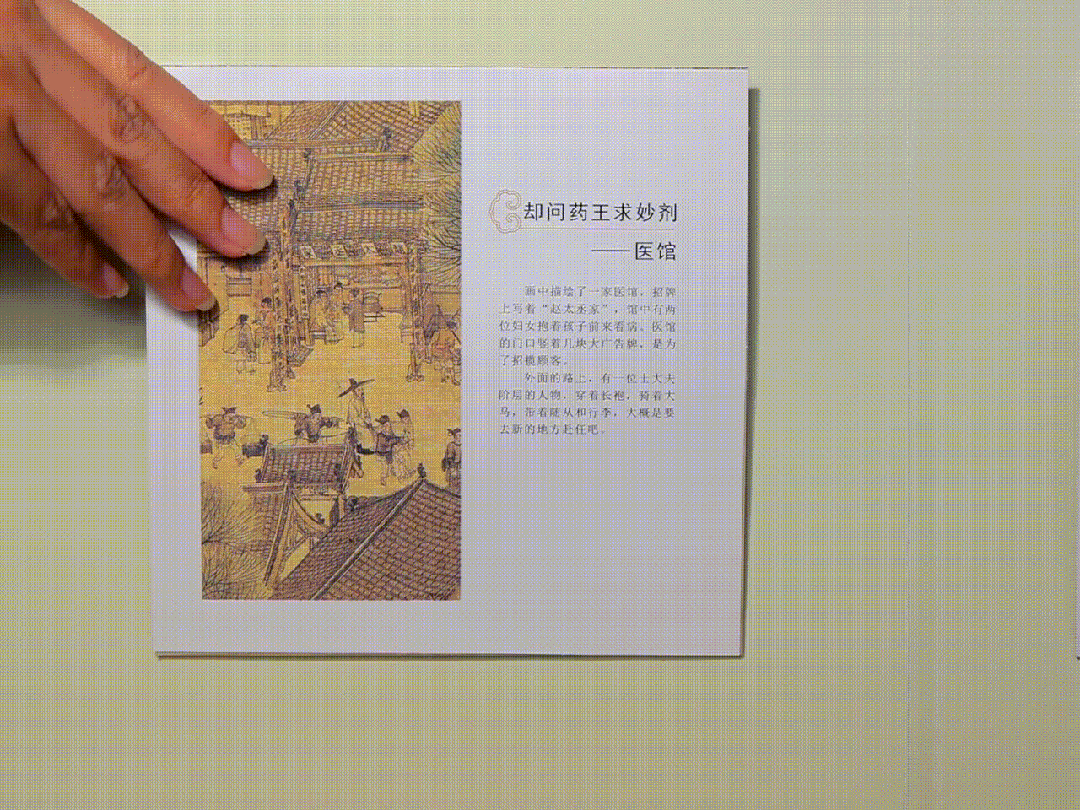 却问药王求妙剂
——医馆
画中描绘了一家医馆，招牌
上写着“赵太丞家”，馆中有两
位妇女抱着孩子前来看病。医馆
的门口竖着几块大广告牌，是为
了招揽顾客。
外面的路上，有一位士大夫
阶层的人物，穿着长袍，骑着大
马，带着随从和行李，大概是要
去新的地方赴任吧。